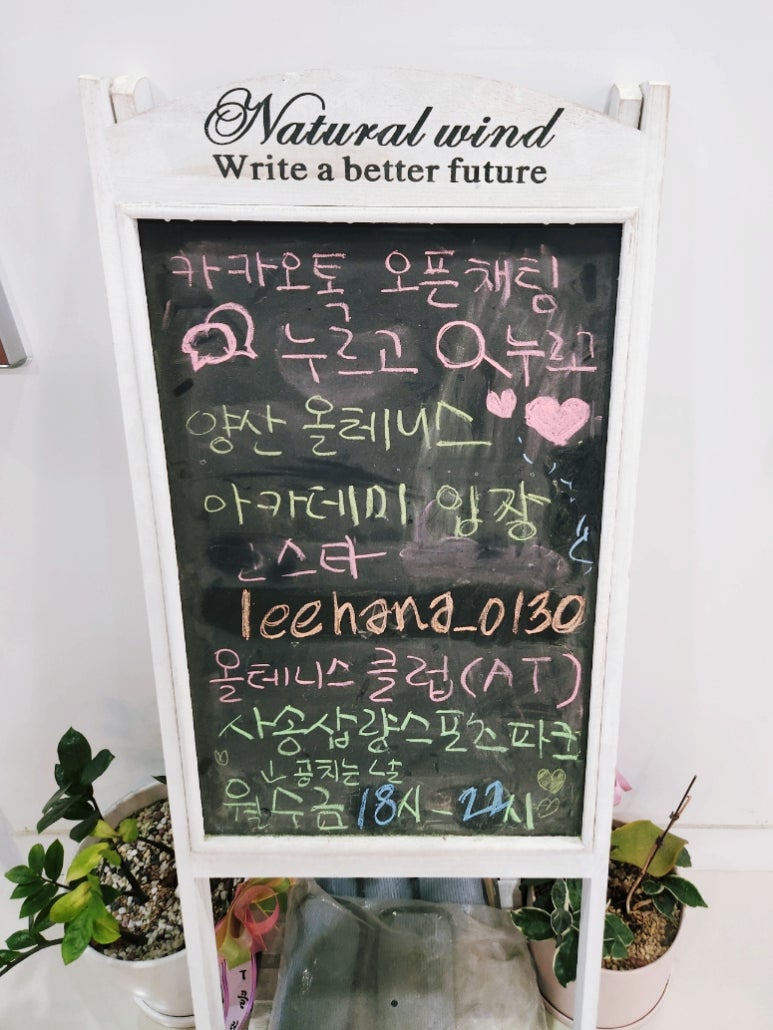 Natural wind
Write a better future
카카오톡 오픈채팅
누르고 누르고
양산 올테니스
아카데미 입장
인스타
leehana_0130
올테니스 클럽(AT)
사송삽량스포츠파크
공치는 날
월수금 18시-22시